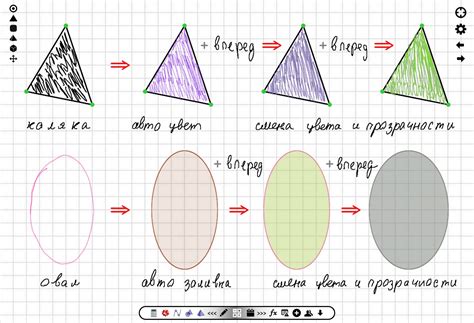 + вперед + вперед
каляка авто цвет смена цвета и прозрачности
+ вперед + вперед
овал авто заливка смена цвета и прозрачности
<<< >>> fx